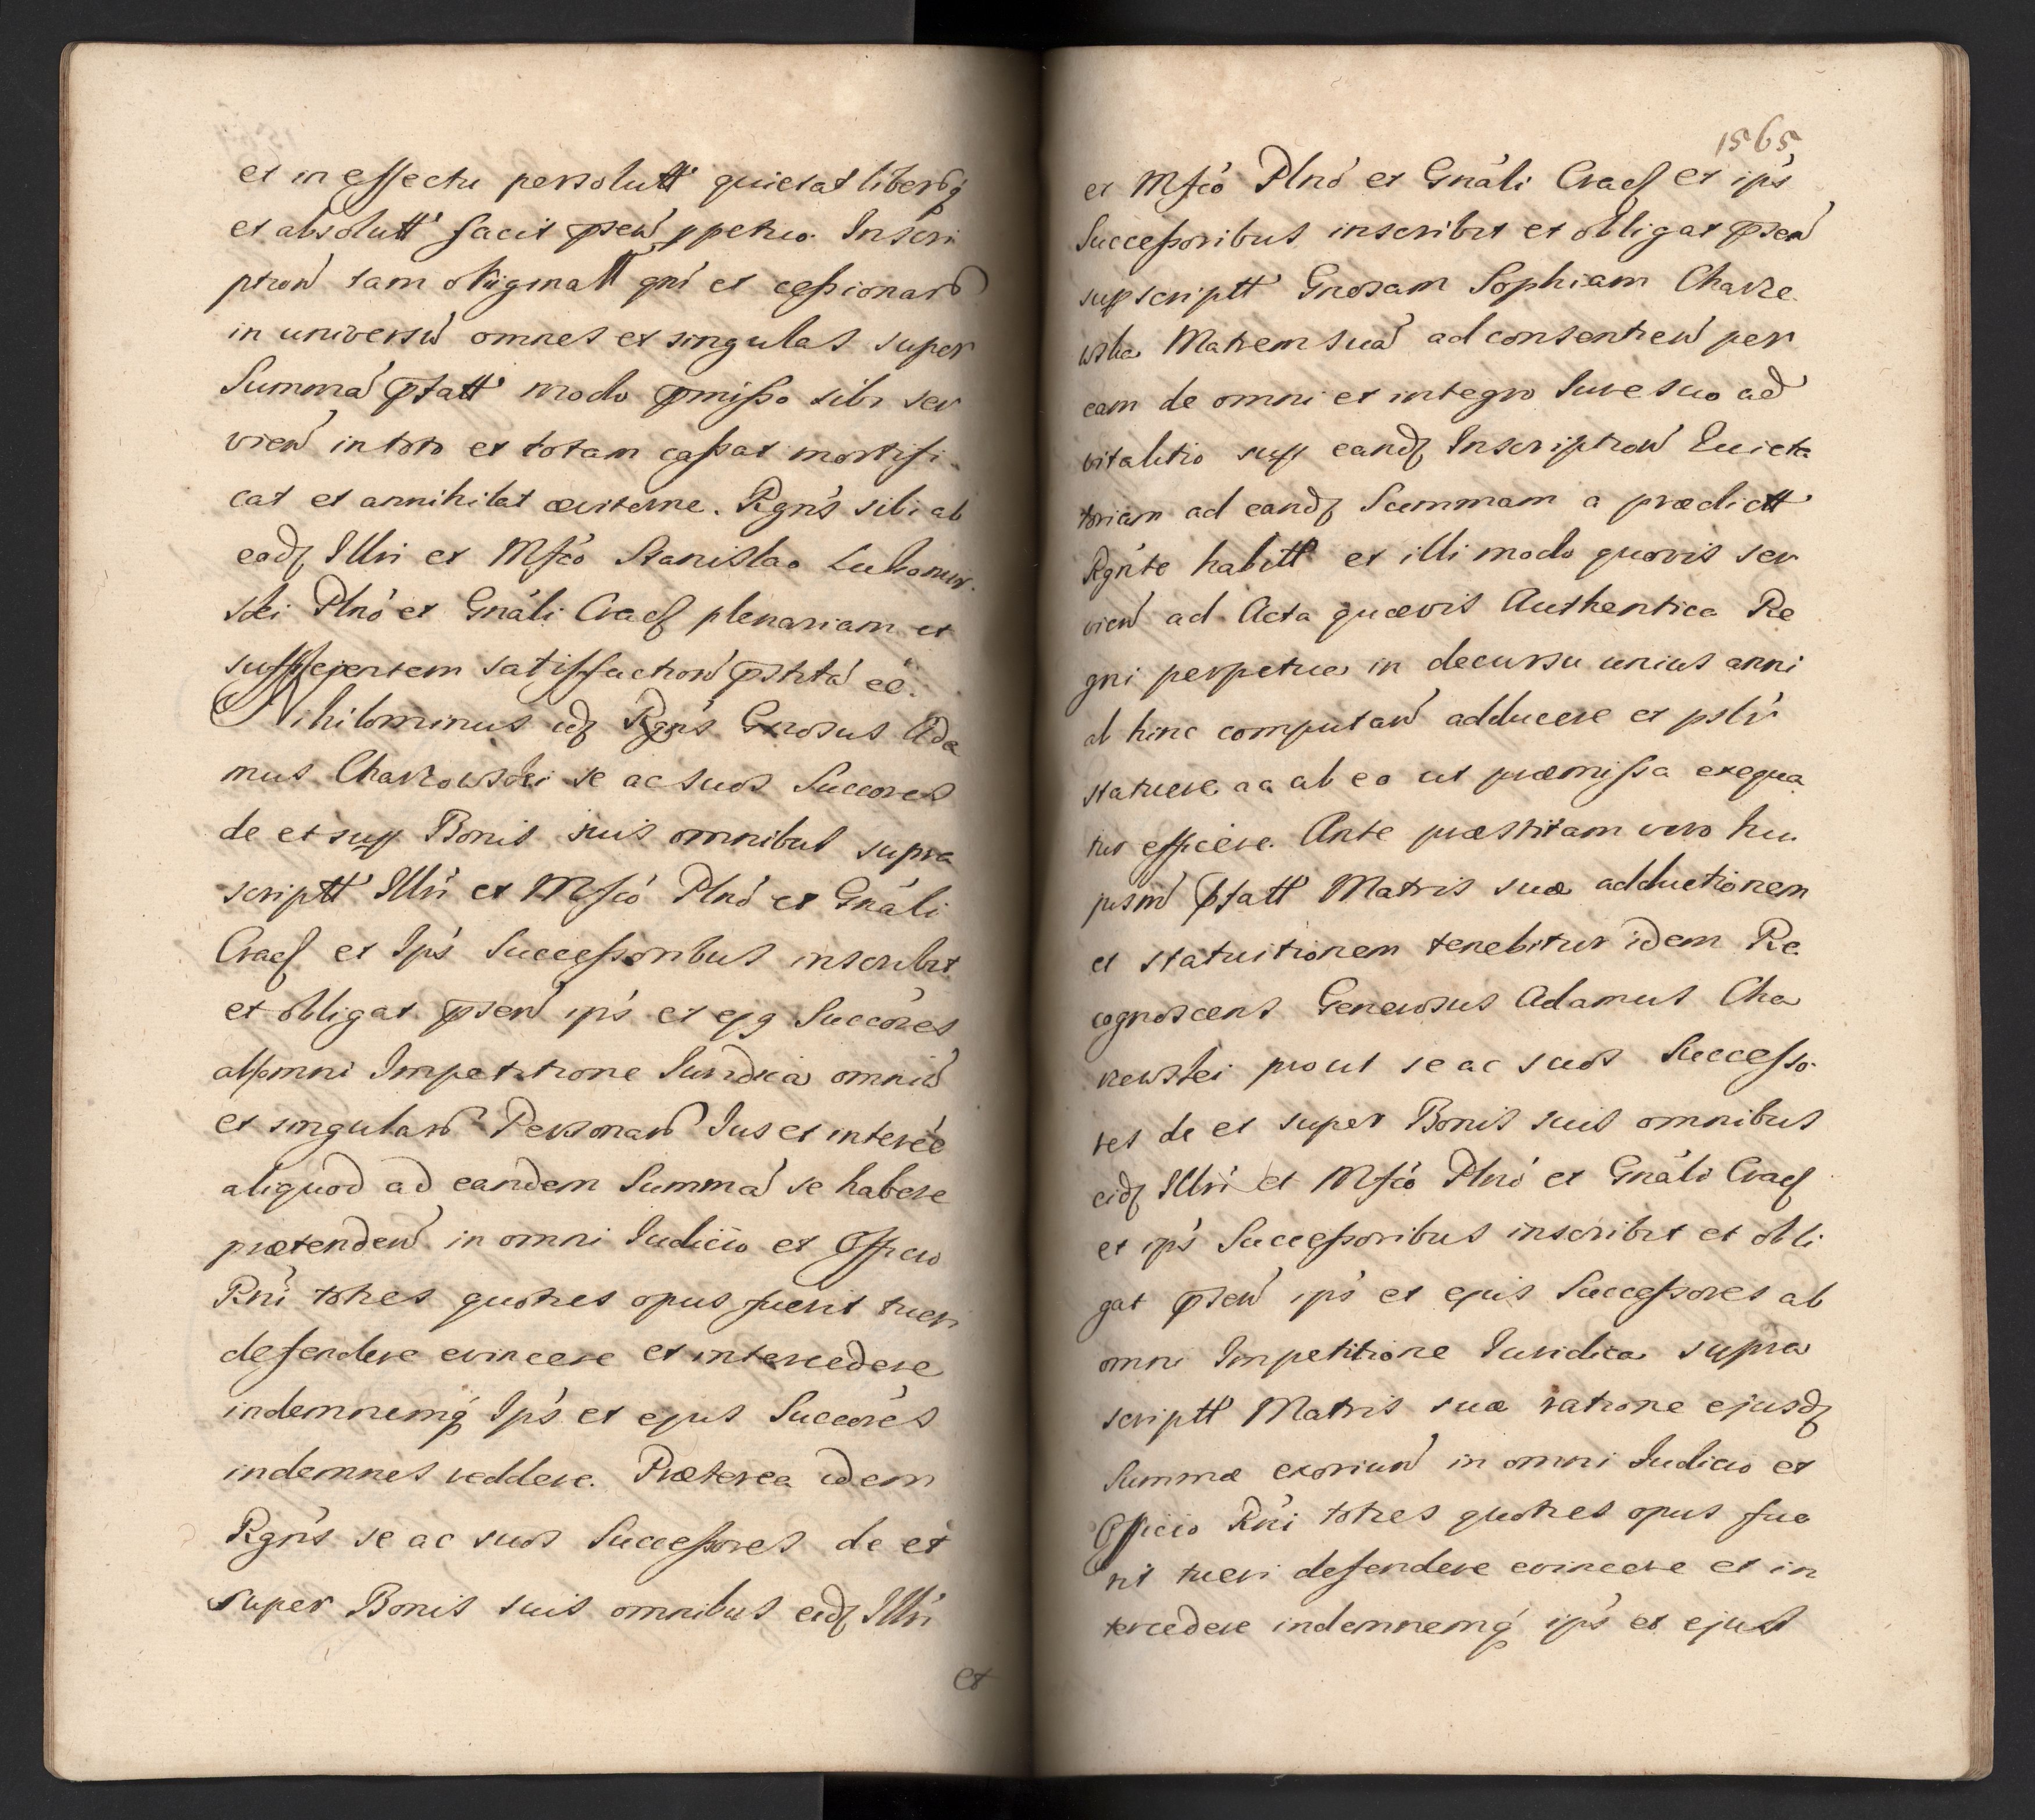 et in effectu persolutt quietat liberosq
et absolutt facit psen ppetuo. Inscri
ption tam originall qm et cessionar
in universu omnes et singulas super
Summa pfatt modo pmisso sibi ser
vien in toto et totam cassat mortifi
cat et annihilat æviterne. Rgns sibi ab
eodq Illri et Mfco Stanislao Lubomir
ski Plno et Gnali Cracf plenariam et
sufficientem satisfaction pstita ee.
Nihilominus idq Rgns Gnosus Ada
mus Charzowski se ac suos Succores
de et supp Bonis suis omnibus supra
scriptt Illri et Mfco Plno et Gnali
Cracf et Ips Successoribus inscribit
et obligat psen ips et ejq Succores
ab omni Impetitione Iuridica omniu
et singular Personar Ius et interee
aliquod ad eandem Summa se habere
prætenden in omni Iudicio et Officio
Rni toties quoties opus fuerit tueri
defendere evincere et intercedere
indemnemq Ips et ejus Succores
indemnes reddere. Præterea idem
Rgns se ac suos Successores de et
super Bonis suis omnibus eidq Illri
et
1565
et Mfco Plno et Gnali Cracf et ips
Successoribus inscribit et obligat psen
supscriptt Gnosam Sophiam Charze
wska Matrem sua ad consentien per
eam de omni et integro Iure suo ad
vitalitio supp eandq Inscription Evicto
toriam ad eandq Summam a prædictt
Rgnte habitt et illi modo quovis ser
vien ad Acta quævis Authentica Re
gni perpetua in decursu unius anni
ab hinc computan adducere et pslr
statuere aa ab eo ut præmissa exequa
tur efficere. Ante præstitam vero hu
jusm pfatt Matris suæ adductionem
et statuitionem tenebitur idem Re
cognoscens Generosus Adamus Cha
rzewski prout se ac suos Successo
res de et super Bonis suis omnibus
eidq Illri et Mfco Plno et Gnali Cracf
et ips Successoribus inscribit et obli
gat psen ips et ejus Successores ab
omni Impetitione Iuridica supra
scriptt Matris suæ ratione ejusdq
Summæ exoriun in omni Iudicio et
Officio Rni toties quoties opus fue
rit tueri defendere evincere et in
tercedere indemnemq ips et ejus